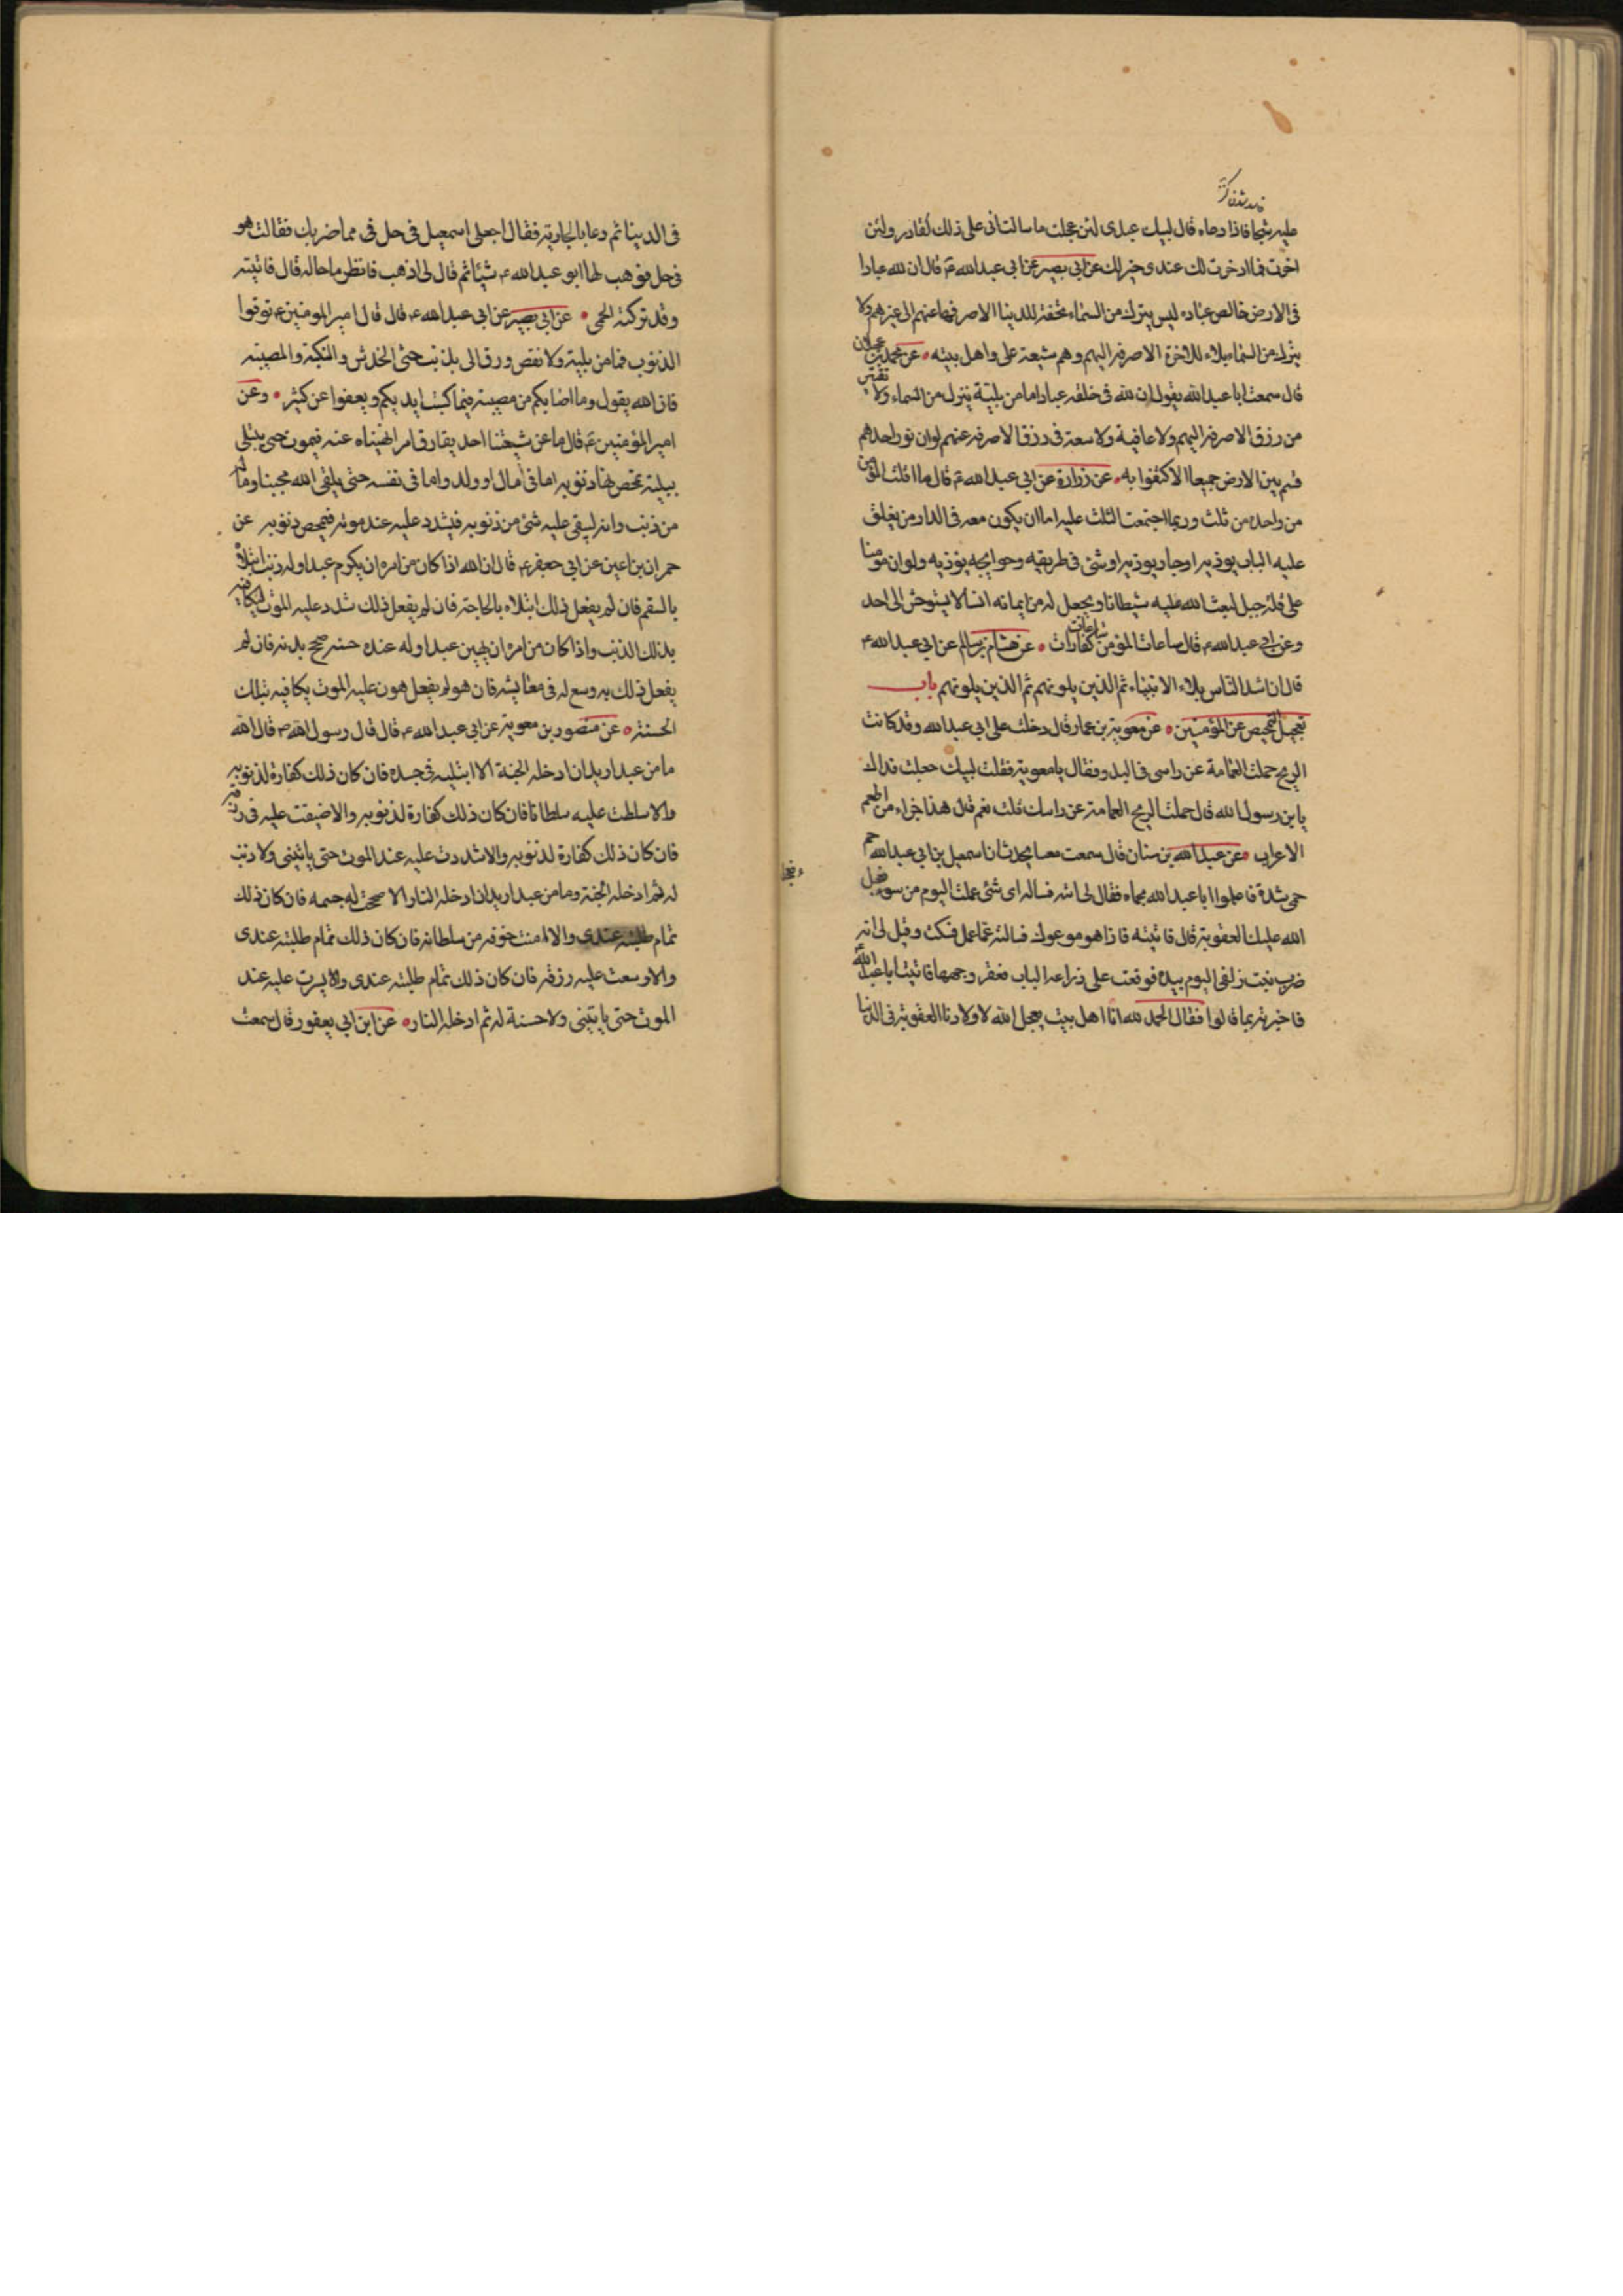 عليه ثجا فاذا دعاه قال لبيك عبدى لئن عجلت ما سالت انى على ذلك لقادر ولئن
اخرت فما ادخرت لك عندى خير لك عن ابى بصير عن ابى عبد الله ع قال ان لله عبادا
فى الارض خالص عباده ليس ينزل من السماء تحفة للدنيا الا صرفها عنهم الى غيرهم ولا
ينزل من السماء بلاء للاخرة الا صرفه اليهم وهم شيعة على واهل بيته عن محمد بن عجلان
قال سمعت ابا عبد الله يقول ان لله فى خلقه عبادا ما من بلية ينزل من السماء ولا تقتير
من رزق الا صرفه اليهم ولا عافية ولا سعة فى رزق الا صرفه عنهم لو ان نور احدهم
قسم بين الارض جميعا الا كتفوا به عن زرارة عن ابى عبد الله ع قال ما افلت المؤمن
من واحدة من ثلث وربما اجتمعت الثلث عليه اما ان يكون معه فى الدار من يغلق
عليه الباب يوذيه او جار يوذيه او شئ فى طريقه وحوايجه يوذيه ولو ان مومنا
على قلة جبل لبعث الله عليه شيطانا ويجعل له من ايمانه انسا لا يستوحش الى احد
وعن ابى عبد الله ع قال ساعات المؤمن كفارات عن هشام بن سالم عن ابى عبد الله ع
قال ان اشد الناس بلاء الانبياء ثم الذين يلونهم ثم الذين يلونهم باب
تعجيل التمحيص عن المؤمنين عن معوية بن عمار قال دخلت على ابى عبد الله وقد كانت
الريح حملت العمامة عن راسى فى البدو فقال يا معوية فقلت لبيك جعلت فداك
يا بن رسول الله قال حملت الريح العمامة عن راسك قلت نعم قال هذا جزاء من اطعم
الاعراب عن عبد الله بن سنان قال سمعت معسا يحدث ان اسمعيل بن ابى عبد الله حم
حمى شدة فاعلموا ابا عبد الله بحماه فقال لى ائته فساله اى شئ عملت اليوم من سوء فعجل
الله عليك العقوبة قال فاتيته فاذا هو موعوك فسالته عما عمل فسكت وقيل لى انه
ضرب بنت زلفى اليوم بيده فوقعت على ذراعه الباب فعقر وجهها فاتيت ابا عبد الله
فاخبرته بما قالوا فقال الحمد لله انا اهل بيت يعجل الله لاولادنا العقوبة فى الدنيا
فى الدينا ثم دعا بالجارية فقال اجعلى اسمعيل فى حل فى مما ضربك فقالت هو
فى حل فوهب لها ابو عبد الله ع شيئا ثم قال لى اذهب فانظر ما حاله قال فاتيته
وقد تركته الحمى عن ابى بصير عن ابى عبد الله ع قال قال امير المومنين ع توقوا
الذنوب فما من بلية ولا نقص ورق الى بذنب حتى الخدش والنكبة والمصيبة
فان الله يقول وما اصابكم من مصيبة فبما كسبت ايديكم ويعفوا عن كثير وعن
امير المؤمنين ع قال ما عن شيعتنا احد يقارق امرا نهيناه عنه فيموت حتى يبتلى
ببلية تمحص بها ذنوبه اما فى مال او ولد واما فى نفسه حتى يلقى الله محبنا وما له
من ذنب وانه ليبقى عليه شئ من ذنوبه فيشدد عليه عند موته فيمحص ذنوبه عن
حمران بن اعين عن ابى جعفر ع قال ان الله اذا كان من امره ان يكرم عبدا وله ذنب ابتلاه
بالسقم فان لم يفعل ذلك ابتلاه بالحاجة فان لم يفعل ذلك شدد عليه الموت ليكافيه
بذلك الذنب واذا كان من امره ان يهين عبدا وله عنده حسنة صحح بدنه فان لم
يفعل ذلك به وسع له فى معايشه فان هو لم يفعل هون عليه الموت يكافيه بتلك
الحسنة عن منصور بن معوية عن ابى عبد الله ع قال قال رسول الله ص قال الله
ما من عبد اريد ان ادخله الجنة الا ابتليته فى جسده فان كان ذلك كفارة لذنوبه
والا سلطت عليه سلطانا فان كان ذلك كفارة لذنوبه والا ضيقت عليه فى رزقه
فان كان ذلك كفارة لذنوبه والا شددت عليه عند الموت حتى ياتينى ولا ذنب
له ثم ادخله الجنة وما من عبد اريد ان ادخله النار الا صححت له جسمه فان كان ذلك
تمام طلبته عندى والا امنت خوفه من سلطانه فان كان ذلك تمام طلبته عندى
والا وسعت عليه رزقه فان كان ذلك تمام طلبته عندى والا يسرت عليه عند
الموت حتى ياتينى ولا حسنة له ثم ادخله النار عن ابن ابى يعفور قال سمعت